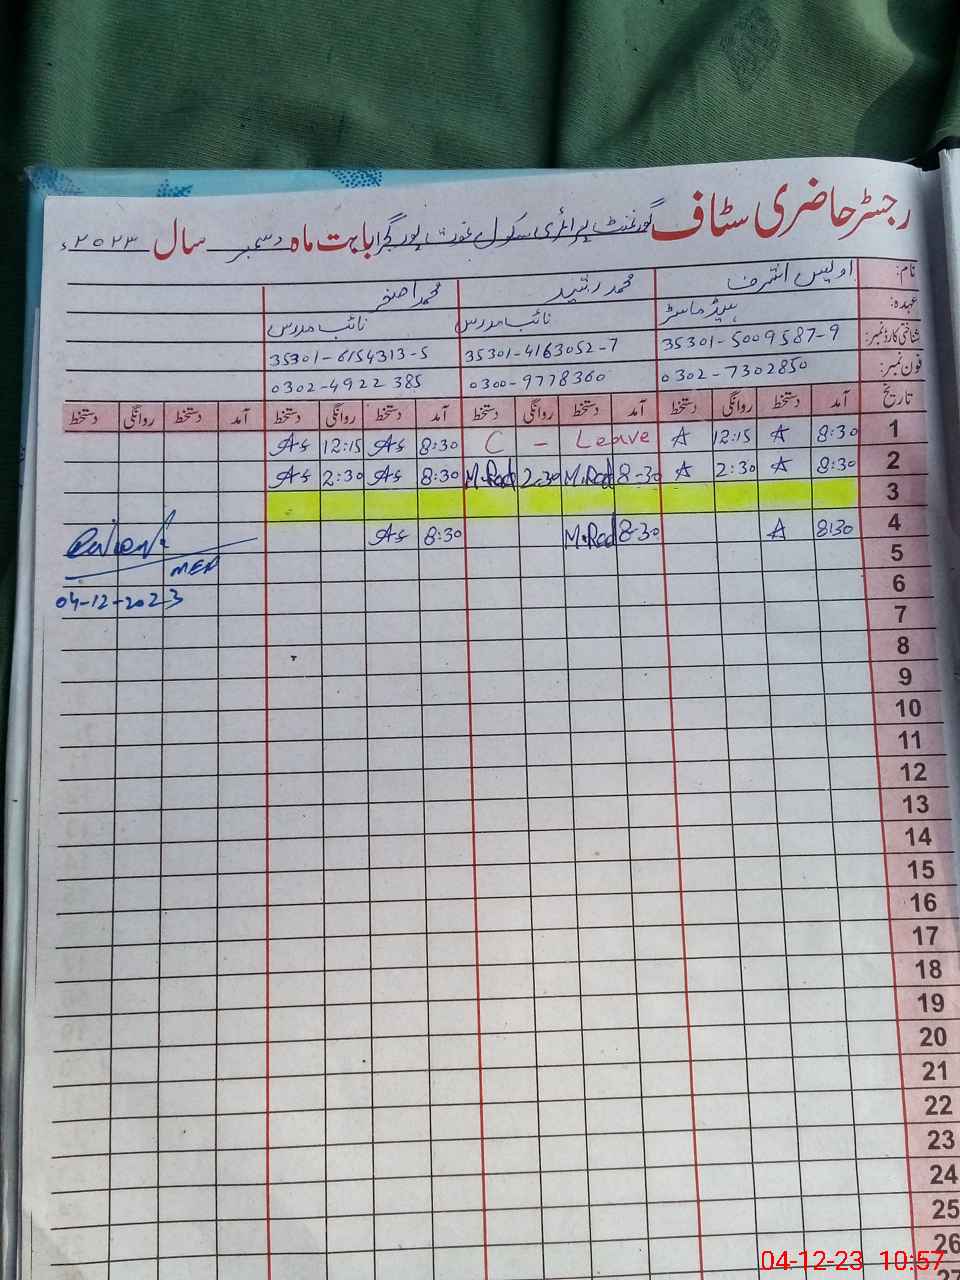 رجسٹر حاضری سٹاف گورنمنٹ پرائمری سکول غوث پور گجراں بابت ماہ دسمبر سال ۲۰۲۳ء
نام: اویس اشرف محمد رشید محمد اصغر
عہدہ: ہیڈ ماسٹر نائب مدرس نائب مدرس
شناختی کارڈ نمبر: 35301-5009587-9 35301-4163052-7 35301-6154313-5
فون نمبر: 0302-7302850 0300-9778360 0302-4922385
تاریخ آمد دستخط روانگی دستخط آمد دستخط روانگی دستخط آمد دستخط روانگی دستخط آمد دستخط روانگی دستخط
1 8:30 A 12:15 A C - Leave 8:30 As 12:15 As
2 8:30 A 2:30 A 8-30 M.Rad 2.30 M.Rad 8:30 As 2:30 As
3
4 8:30 A 8-30 M.Rad 8:30 As
MEA
5
04-12-2023
6
7
8
9
10
11
12
13
14
15
16
17
18
19
20
21
22
23
24
25
26
27
04-12-23 10:57